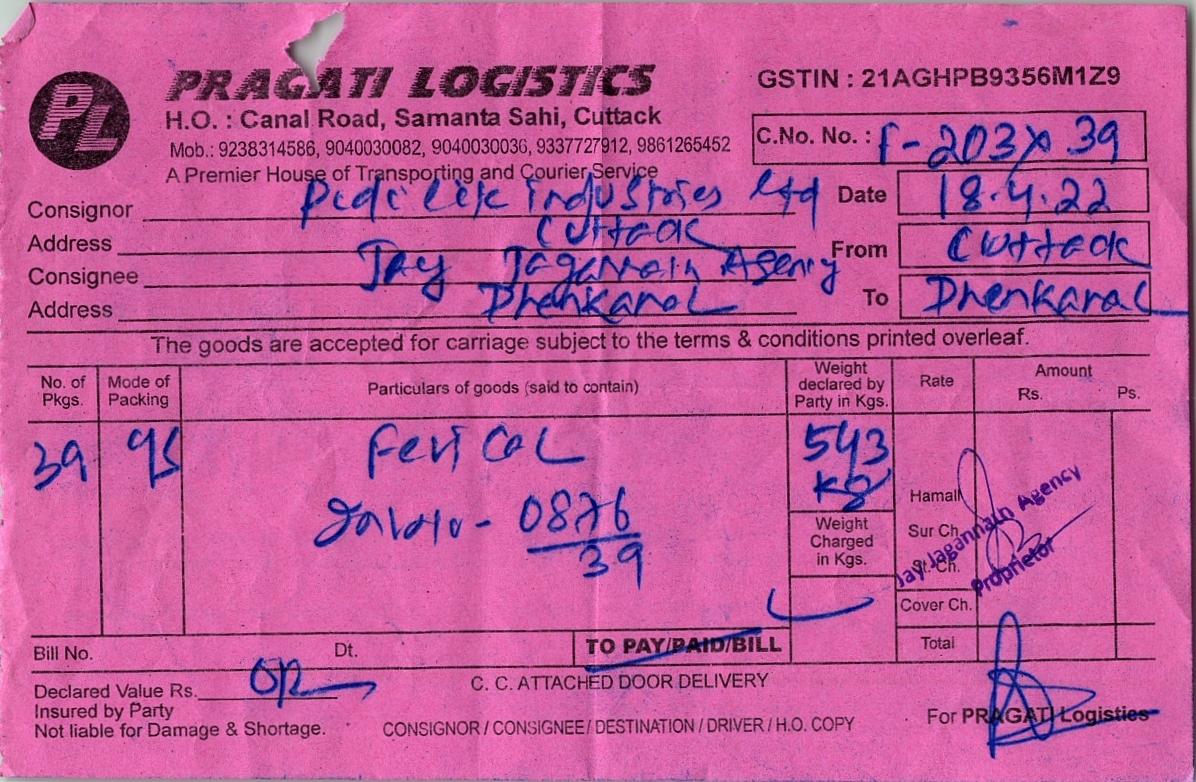 PL
PRAGATI LOGISTICS
GSTIN : 21AGHPB9356M1Z9
H.O. : Canal Road, Samanta Sahi, Cuttack
C.No. No. :
Mob.: 9238314586, 9040030082, 9040030036, 9337727912, 9861265452
A Premier House of Transporting and Courier Service
Consignor Pidilite industries Ltd
Date 18.4.22
Address Cuttack
From Cuttack
Consignee Jay Jagannath Agency
Address Dhenkanal
To Dhenkanal
The goods are accepted for carriage subject to the terms & conditions printed overleaf.
No. of Pkgs. Mode of Packing Particulars of goods (said to contain) Weight declared by Party in Kgs. Rate Amount Rs. Ps.
39 Fevi Col 543 kg
0876
39
Weight Charged in Kgs.
Hamali
Sur Ch.
St. Ch.
Cover Ch.
Jay Jagannath Agency
Proprietor
Bill No. Dt. TO PAY/PAID/BILL Total
Declared Value Rs.
C. C. ATTACHED DOOR DELIVERY
Insured by Party
Not liable for Damage & Shortage.
CONSIGNOR / CONSIGNEE / DESTINATION / DRIVER / H.O. COPY
For PRAGATI Logistics